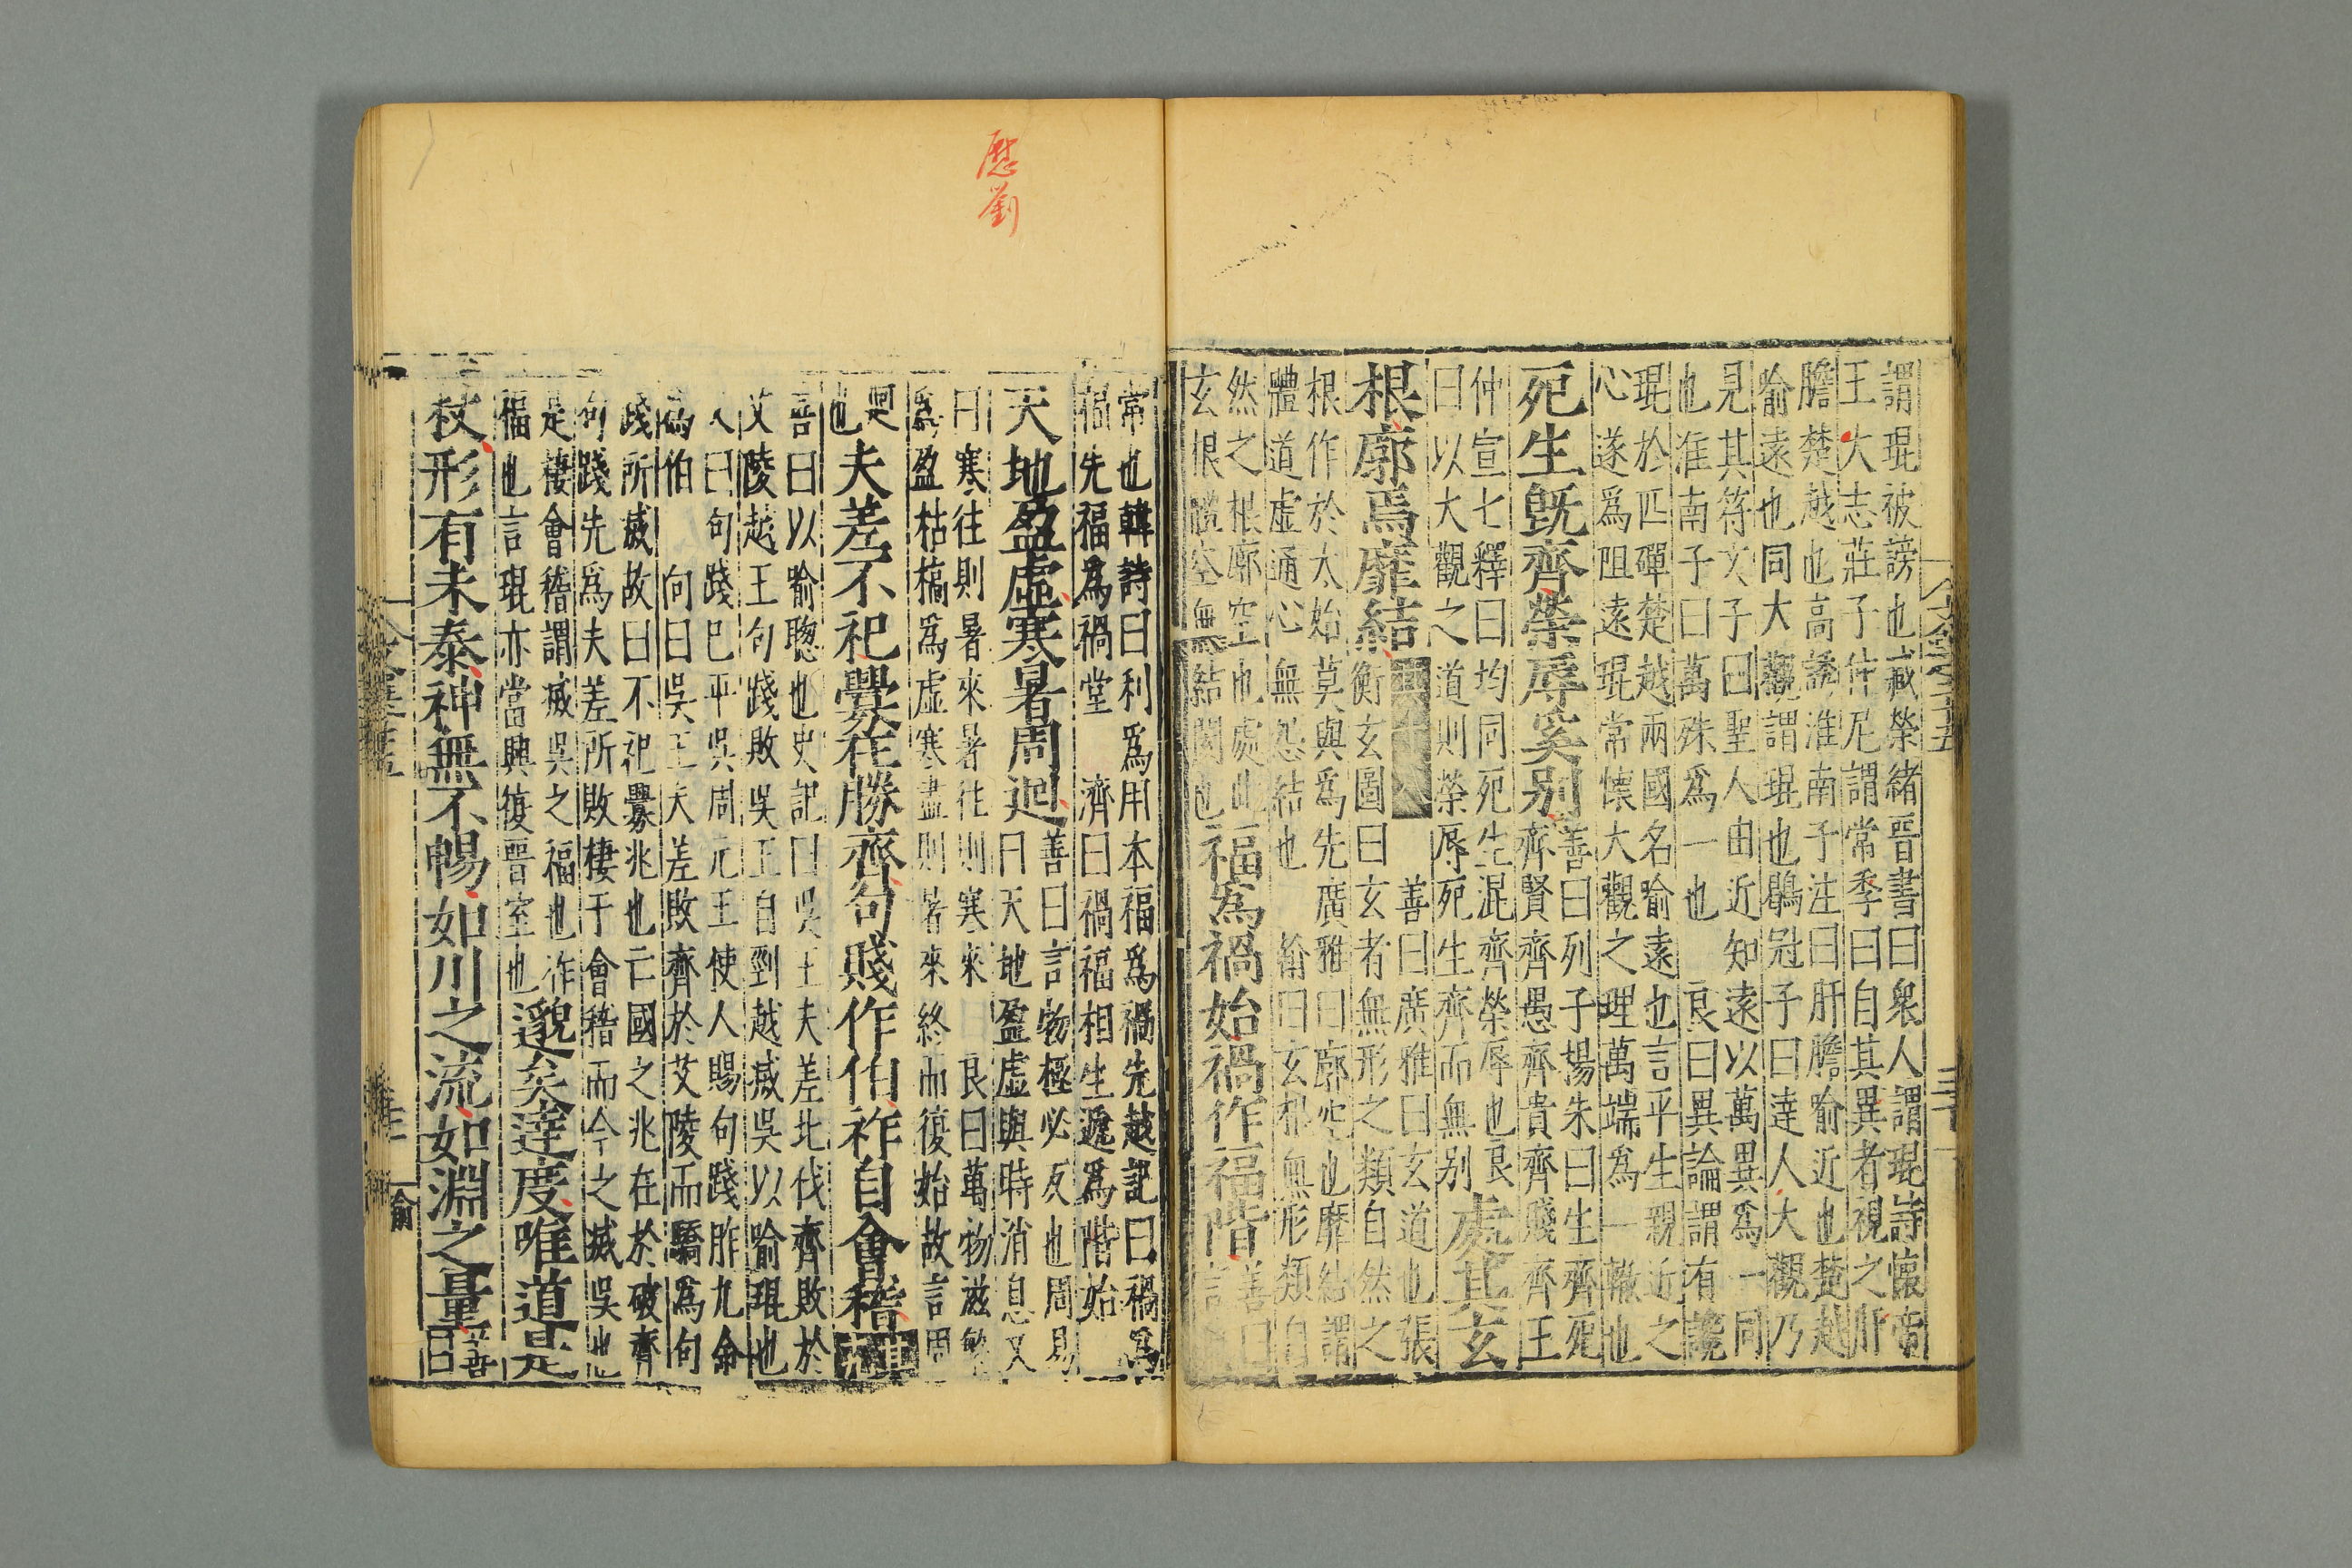 謂琨被謗也臧榮緒晉書曰衆人謂琨詩懷帝
王大志莊子仲尼謂常季曰自其異者視之肝
膽楚越也高誘淮南子注曰肝膽喻近也楚越
喻遠也同大觀謂琨也鶡冠子曰達人大觀乃
見其符文子曰聖人由近知遠以萬異爲一同
也淮南子曰萬殊爲一也 良曰異論謂有讒
琨於匹磾楚越兩國名喻遠也言平生親近之
心遂爲阻遠琨常懷大觀之理萬端爲一轍也
死生旣齊榮辱奚别
善曰列子揚朱曰生齊死
齊賢齊愚齊貴齊賤齊王
仲宣七釋曰均同死生混齊榮辱也良
曰以大觀之道則榮辱死生齊而無别
處其玄
根廓焉靡結
善曰廣雅曰玄道也張
衡玄圖曰玄者無形之類自然之
根作於太始莫與爲先廣雅曰廓空也靡結謂
體道虛通心無怨結也 翰曰玄根無形類自
然之根廓空也處此
玄根 空無結閡也
福爲禍始禍作福階
善曰
言
常也韓詩曰利爲用本福爲禍先越記曰禍爲
福先福爲禍堂 濟曰禍福相生遞爲階始
天地盈虛寒暑周迴
善曰言物極必反也周易
曰天地盈虛與時消息又
曰寒往則暑來暑往則寒來 良曰萬物滋繁
爲盈枯槁爲虛寒盡則暑來終而復始故言周
迴
也
夫差不祀釁在勝齊句賤作伯祚自會稽
善曰以喻聰也史記曰吳王夫差北伐齊敗於
艾陵越王句踐敗吳吳王自剄越滅吳以喻琨也
又曰句踐已平吳周元王使人賜句踐胙九命
爲伯 向曰吳王夫差敗齊於艾陵而驕爲句
踐所滅故曰不祀釁兆也亡國之兆在於破齊
句踐先爲夫差所敗棲于會稽而今之滅吳也
是棲會稽謂滅吳之福也祚
福也言琨亦當興復晉室也
邈矣達度唯道是
杖形有未泰神無不暢如川之流如淵之量
善
曰
六臣
三十
喻
歷劉